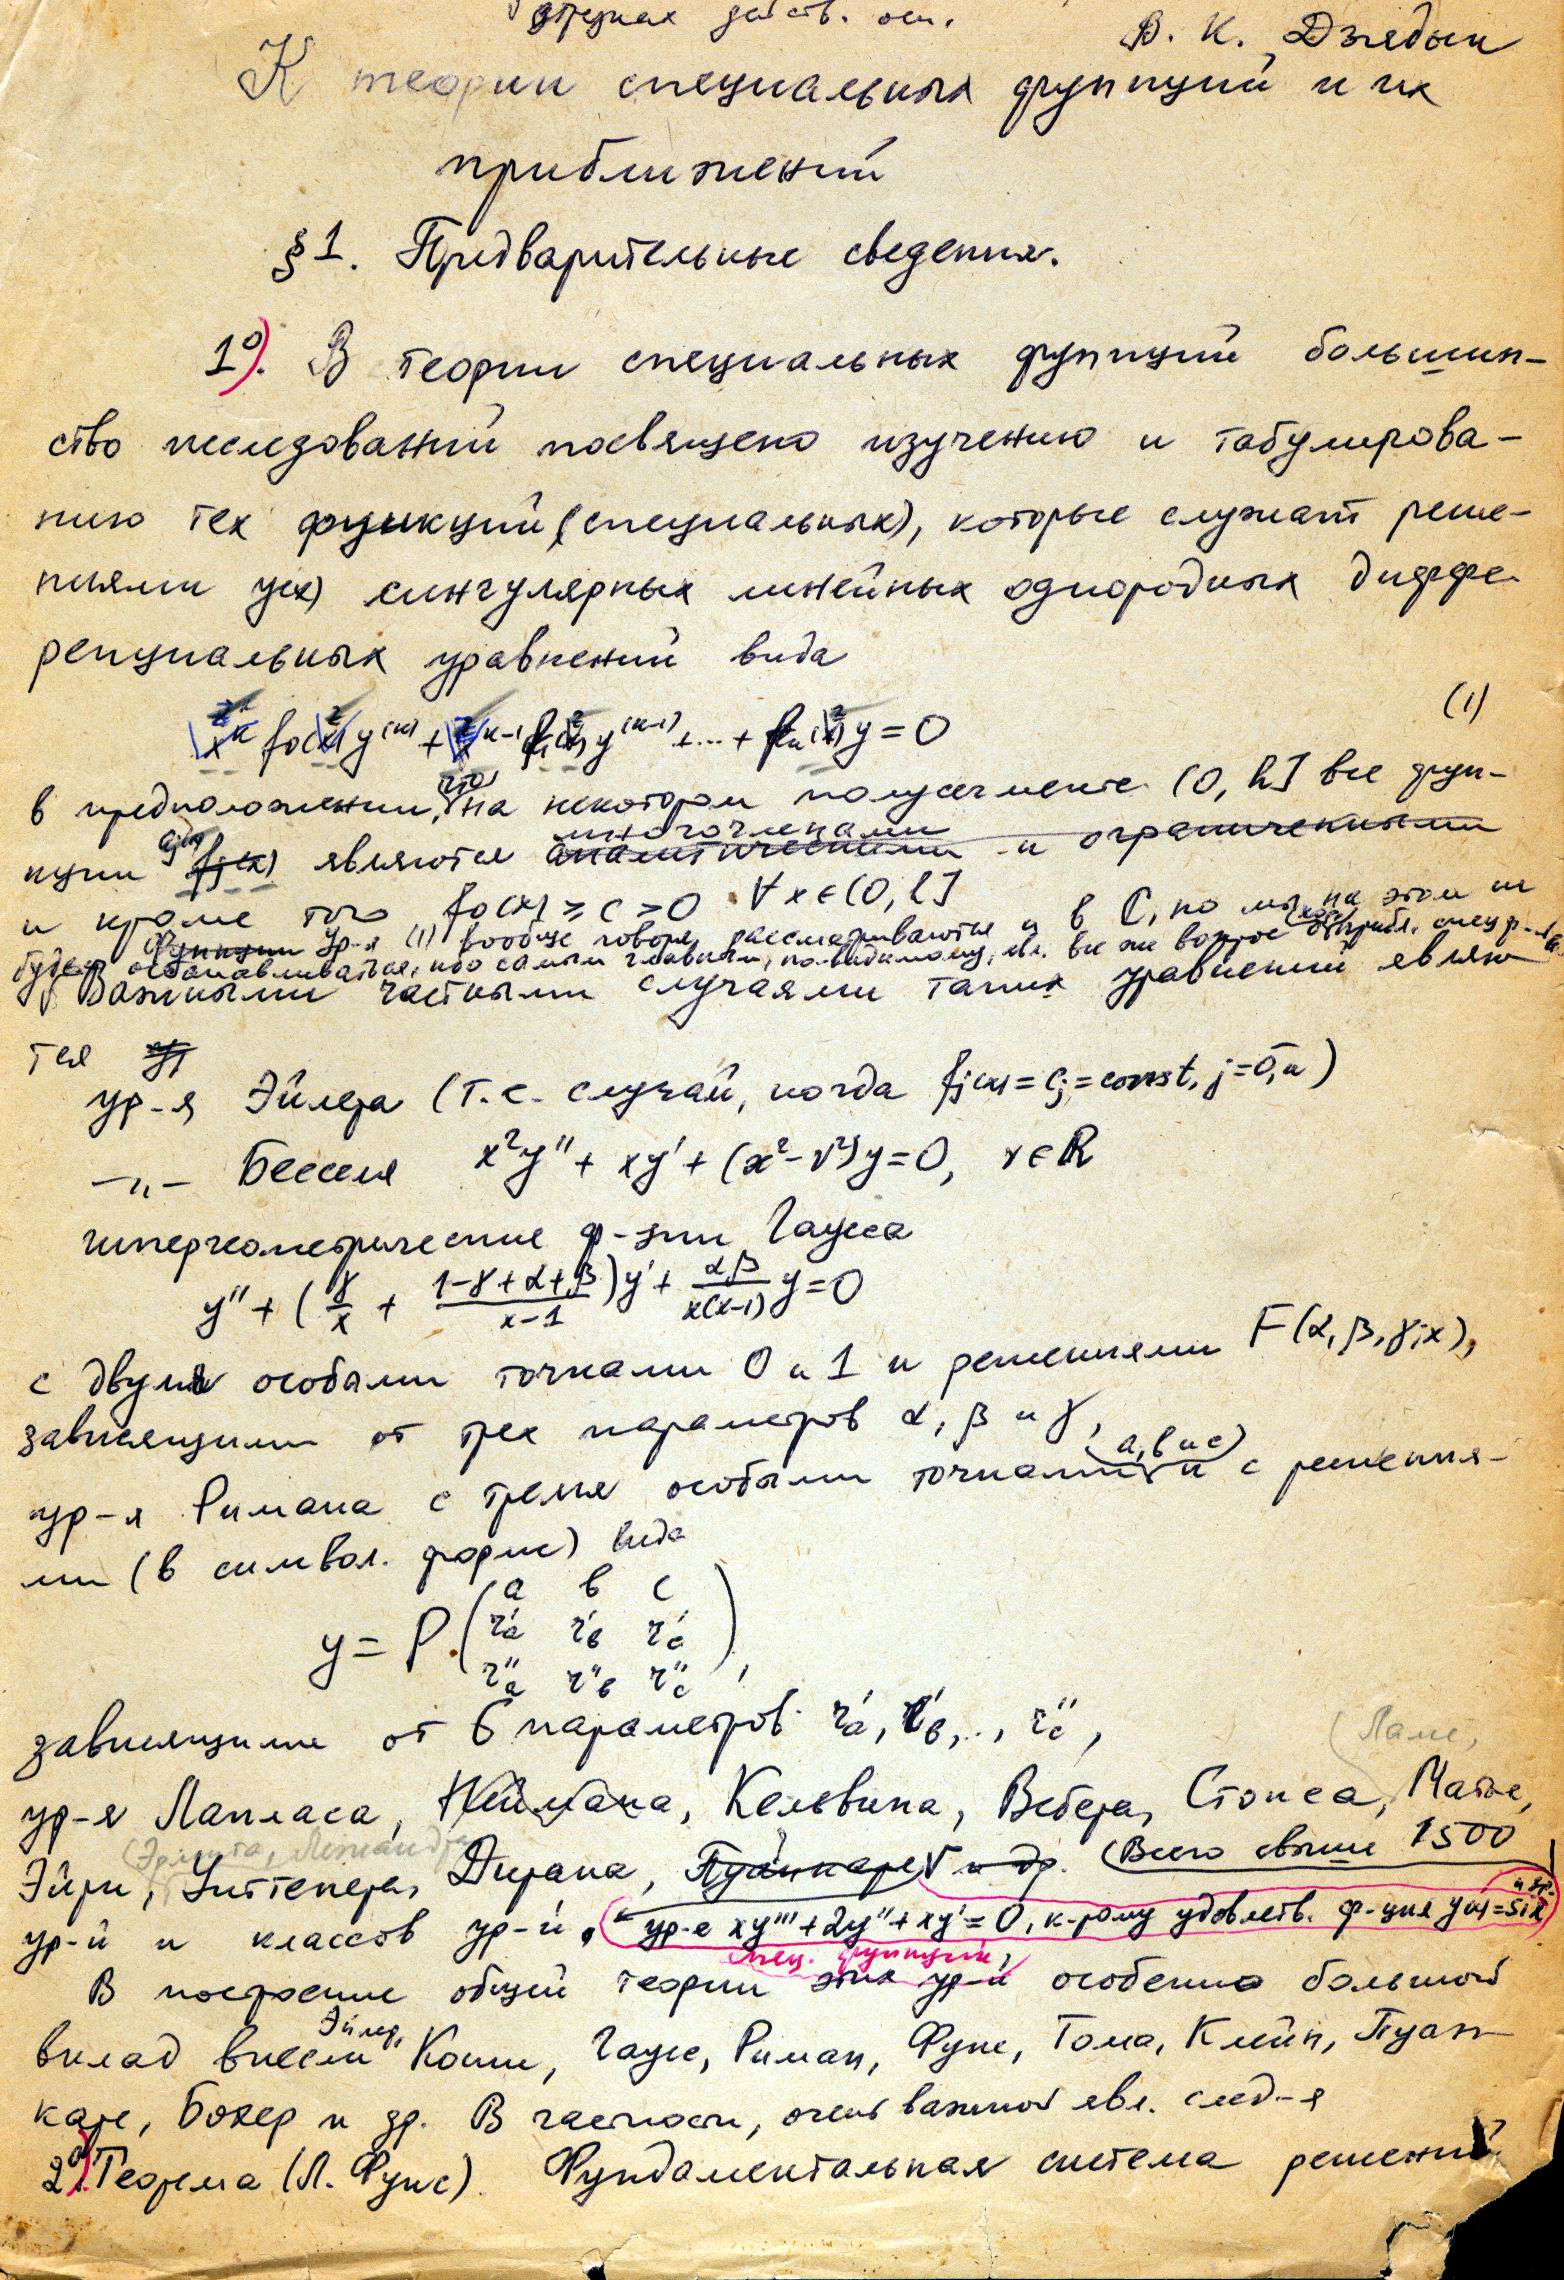 отрезках действ. оси.
В. К. Дзядык
К теории специальных функций и их
приближений
§1. Предварительные сведения.
1⁰). В теории специальных функций большин-
ство исследований посвящено изучению и табулирова-
нию тех функций (специальных), которые служат реше-
ниями y(x) сингулярных линейных однородных диффе-
ренциальных уравнений вида
xⁿ f₀(x) y⁽ⁿ⁾ + xⁿ⁻¹ f₁(x) y⁽ⁿ⁻¹⁾ + ... + fₙ(x) y = 0 (1)
в предположении, что на некотором полусегменте (0, h] все функ-
ции fⱼ(x) являются многочленами аналитическими и ограниченными
и кроме того f₀(x) ≥ c > 0 ∀ x ∈ (0, h]
Функции ур-я (1) вообще говоря рассматриваются и в ℂ, но мы на этом не
будем останавливаться, ибо самым главным, по-видимому, явл. все же вопрос о прибл. спец. ф-
Важными частными случаями таких уравнений являю
тся
ур-я Эйлера (т.е. случай, когда fⱼ(x) = cⱼ = const, j = 0,n)
–"– Бесселя x²y'' + xy' + (x² – ν²)y = 0, ν ∈ ℝ
гипергеометрические ф-ции Гаусса
y'' + (γ/x + (1–γ+α+β)/(x–1)) y' + αβ/(x(x–1)) y = 0
с двумя особыми точками 0 и 1 и решениями F(α, β, γ; x),
зависящими от трех параметров α, β и γ,
ур-я Римана с тремя особыми точками (a, b и c) и с решения-
ми (в символ. форме) вида
y = P (a b c
r'a r'b r'c
r''a r''b r''c),
зависящими от 6 параметров r'a, r'b, .., r''c,
(Ламе,
ур-я Лапласа, Неймана, Кельвина, Вебера, Стокса, Матье,
(Эрмита, Лежандра
Эйри, Уиттекера, Дирака, Пуанкаре и др. (Всего свыше 1500
ур-й и классов ур-й. ур-е xy''' + 2y'' + xy' = 0, к-рому удовлетв. ф-ция y(x) = six и др.
спец. функций,
В построение общей теории этих ур-й особенно большой
вклад внесли Эйлер, Коши, Гаусс, Риман, Фукс, Тома, Клейн, Пуан-
каре, Бохер и др. В частности, очень важной явл. след-я
2⁰). Теорема (Л. Фукс). Фундаментальная система решений